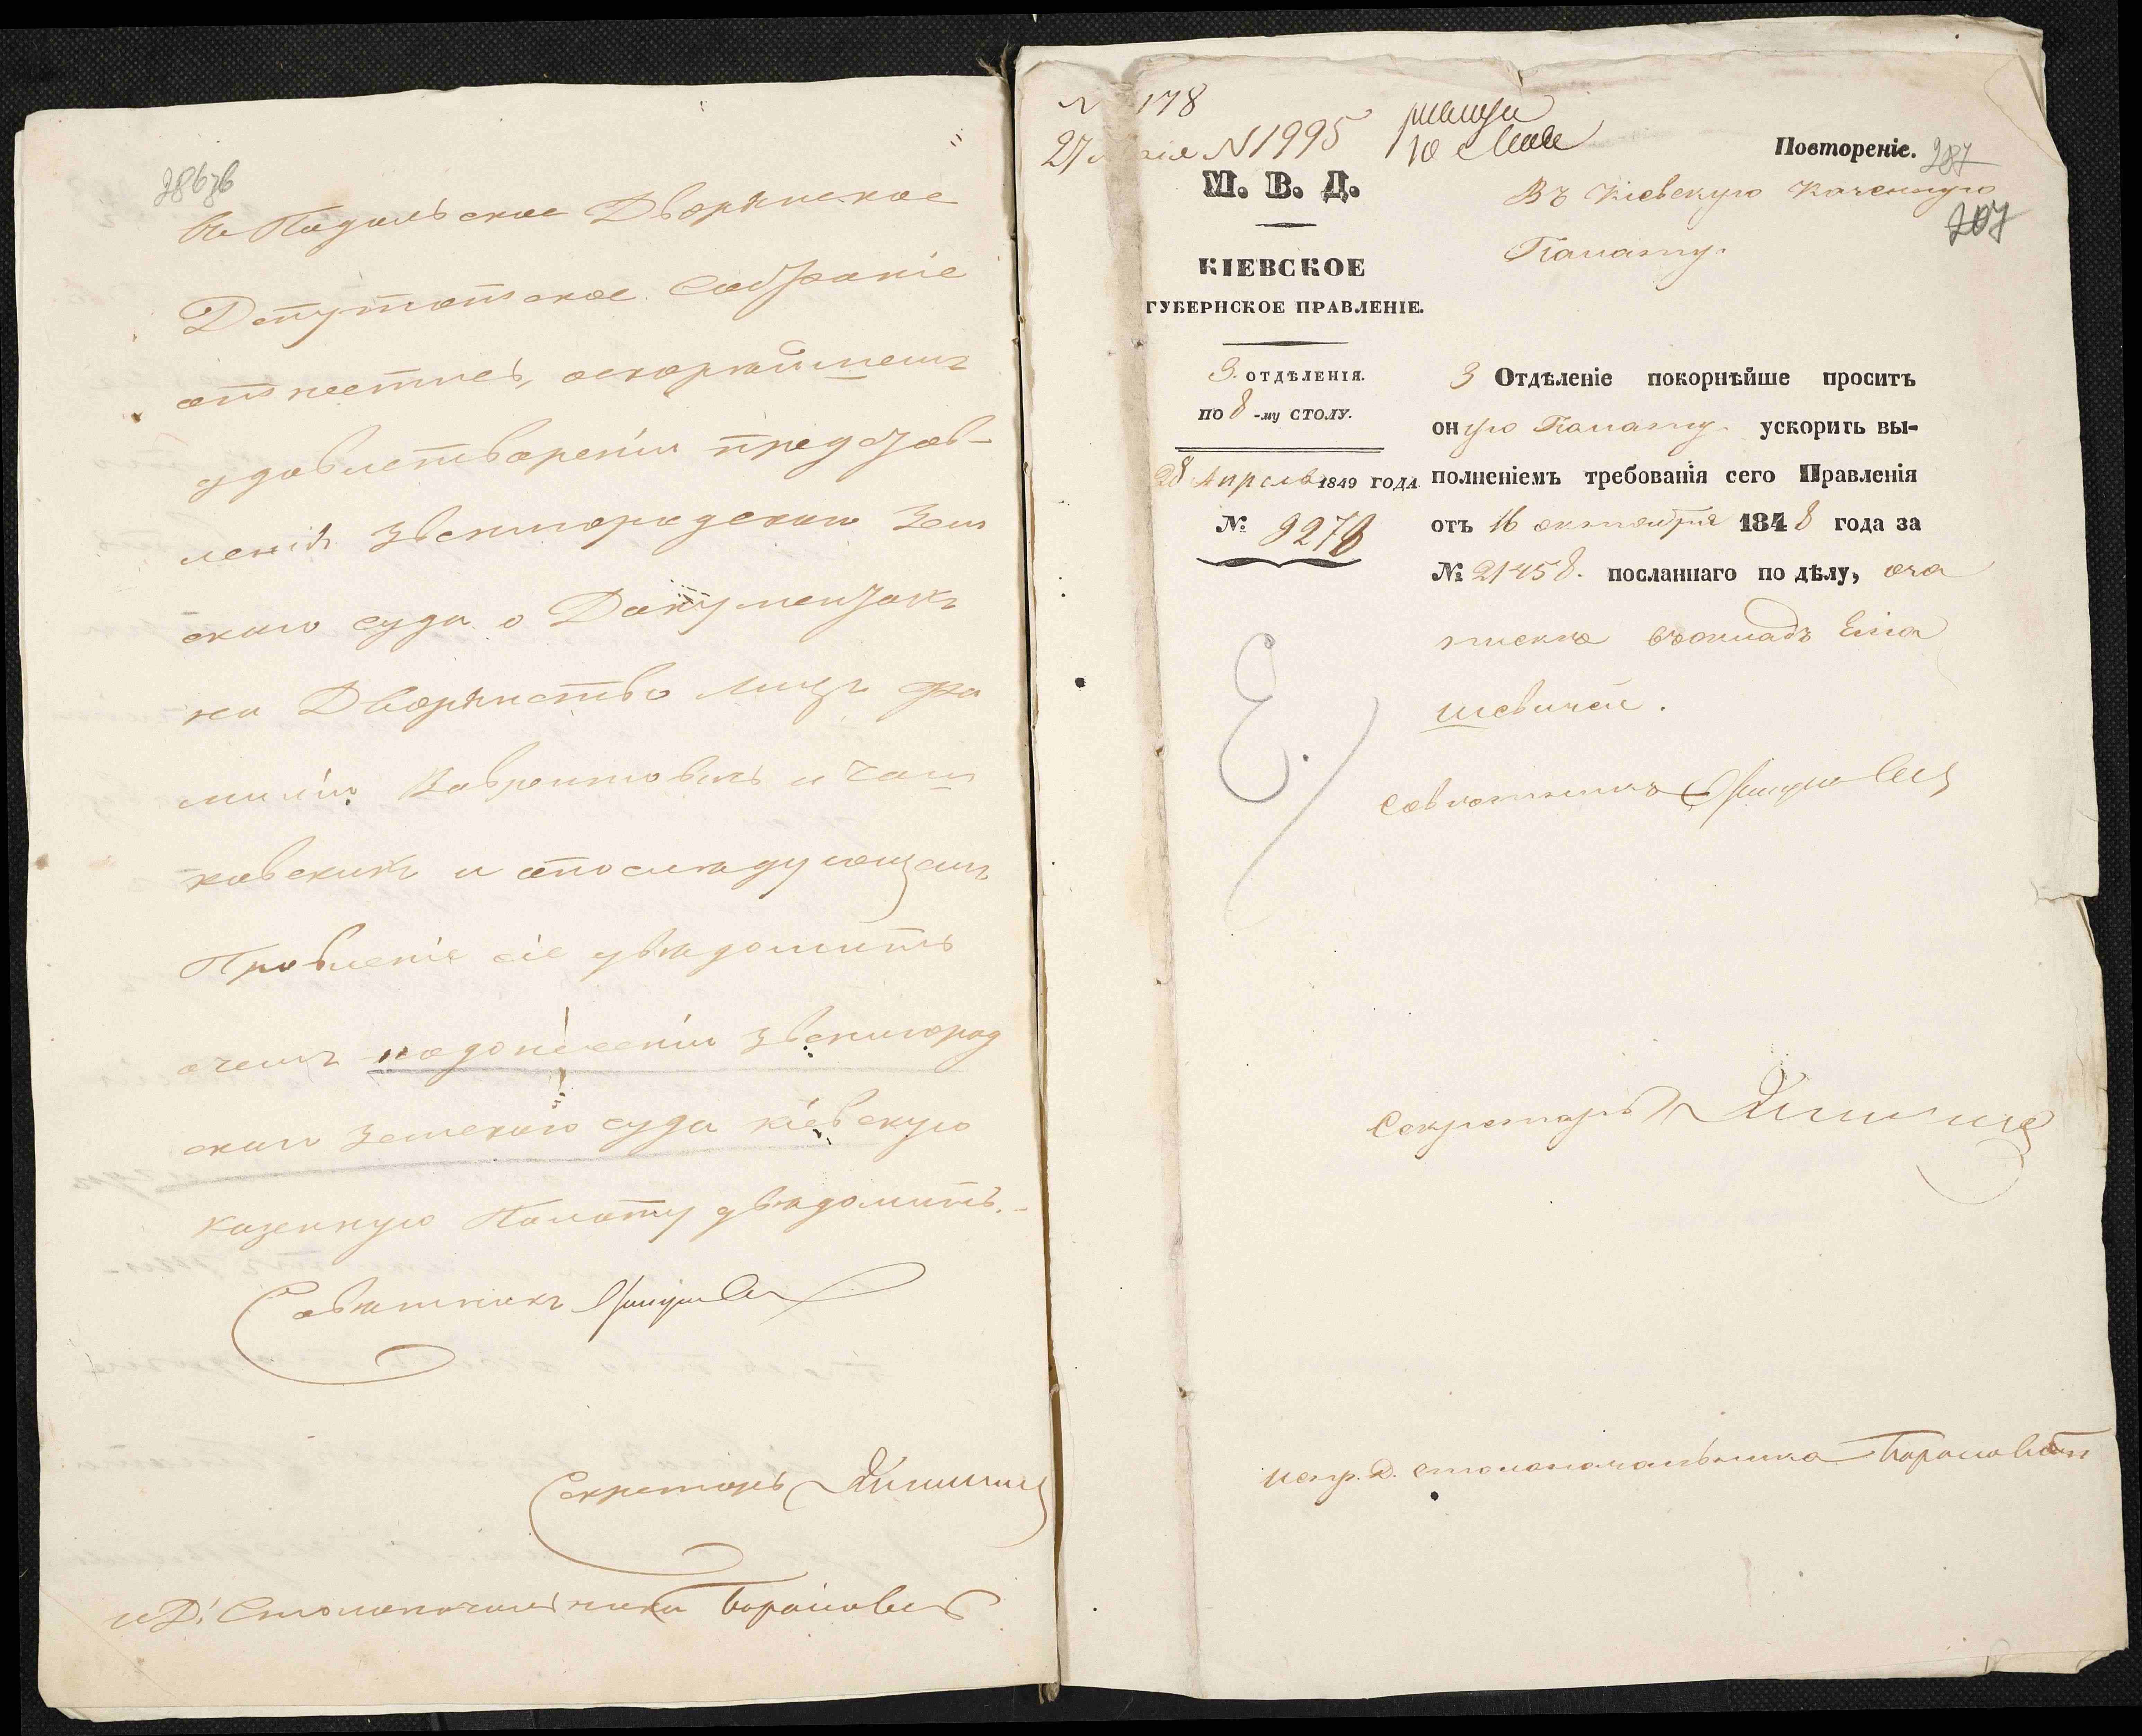 въ Подольское Дворянское
Депутатское Собраніе
отнестись, оскорѣйшемъ
удовлетвореніи представ-
ленія Звенигородскаго Зем
скаго суда о Документахъ
на Дворянство лицъ фа
миліи и
ковскихъ и опослѣдующемъ
Правленіе сіе увѣдомить
очемъ надонесеніи Звенигород
скаго Земскаго суда Кіевскую
Казенную Палату увѣдомить.-
Совѣтникъ
Секретарь
И Д. Столоначальника
178
27 Маія N 1995
Повтореніе.
287
207
М. В. Д.
КІЕВСКОЕ
ГУБЕРНСКОЕ ПРАВЛЕНІЕ.
3. ОТДѢЛЕНІЯ.
ПО 8 -му СТОЛУ.
28 Апреля 1849 ГОДА
№ 9278
Въ Кіевскую Казенную
Палату.
3 Отдѣленіе покорнѣйше проситъ
оную Палату ускорить вы-
полненіемъ требованія сего Правленія
отъ 16 октября 1848 года за
№ 21458. посланнаго по дѣлу, оза
пискѣ въокладъ
шевичей.
Совѣтникъ
Секретарь
Испр. Д. столоначальника